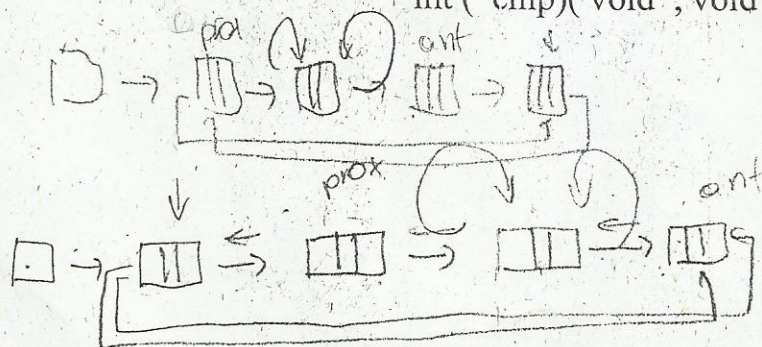 int (*cmp)(void*, void
prox
ant
prox
ant